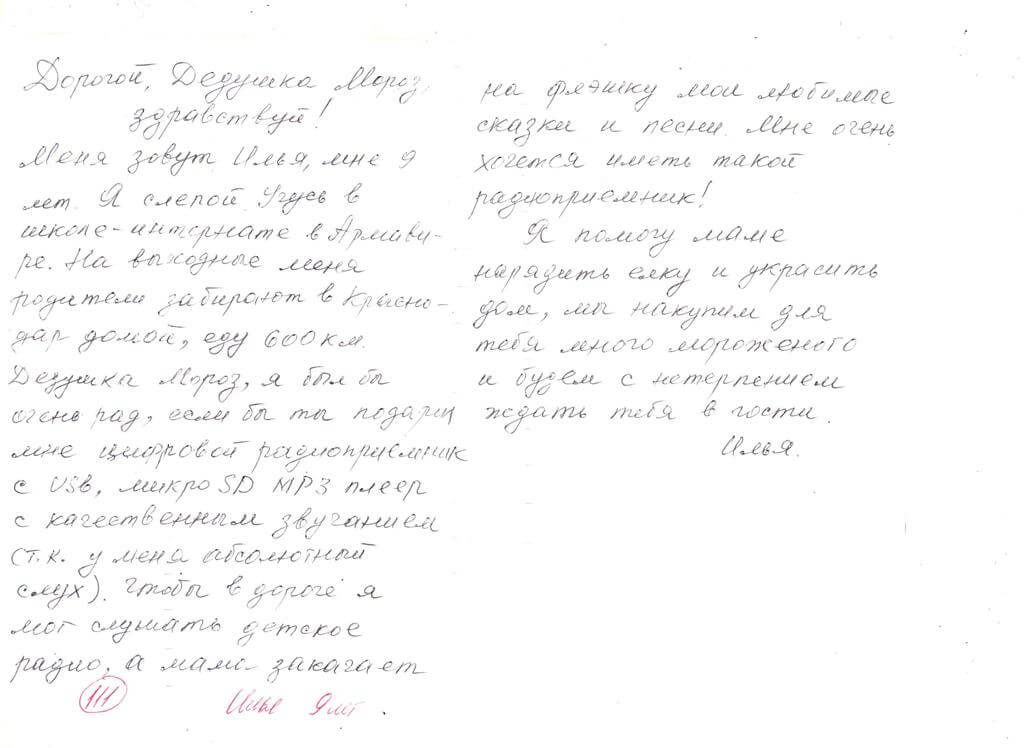 Дорогой, Дедушка Мороз,
здравствуй!
Меня зовут Илья, мне 9
лет. Я слепой. Учусь в
школе-интернате в Армави-
ре. На выходные меня
родители забирают в Красно-
дар домой, еду 600 км.
Дедушка Мороз, я был бы
очень рад, если бы ты подарил
мне цифровой радиоприемник
с USB, микро SD MP3 плеер
с качественным звучанием
(т.к. у меня абсолютный
слух). Чтобы в дороге я
мог слушать детское
радио, а мама закачает
111 Илье 9 лет.
на флэшку мои любимые
сказки и песни. Мне очень
хочется иметь такой
радиоприемник!
Я помогу маме
нарядить елку и украсить
дом, мы накупим для
тебя много мороженого
и будем с нетерпением
ждать тебя в гости.
Илья.